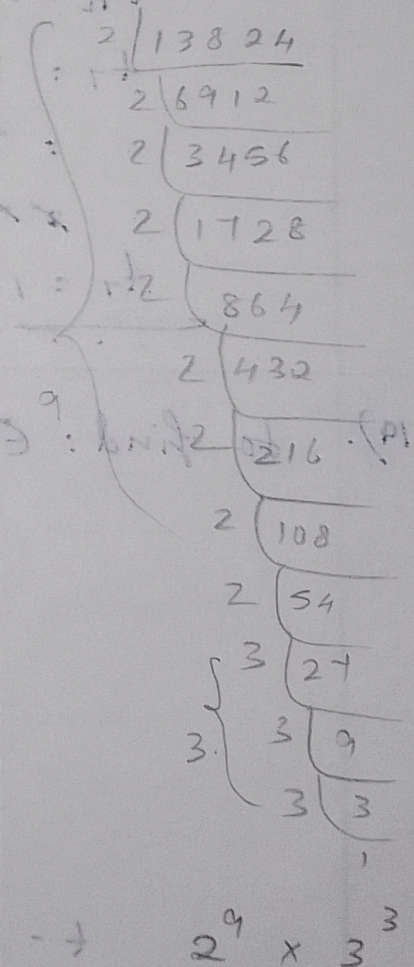 2 | 13824
2 | 6912
2 | 3456
2 | 1728
2 | 864
2 | 432
9
2 | 216
2 | 108
2 | 54
3 | 27
3. 3 | 9
3 | 3
1
2⁹ × 3³